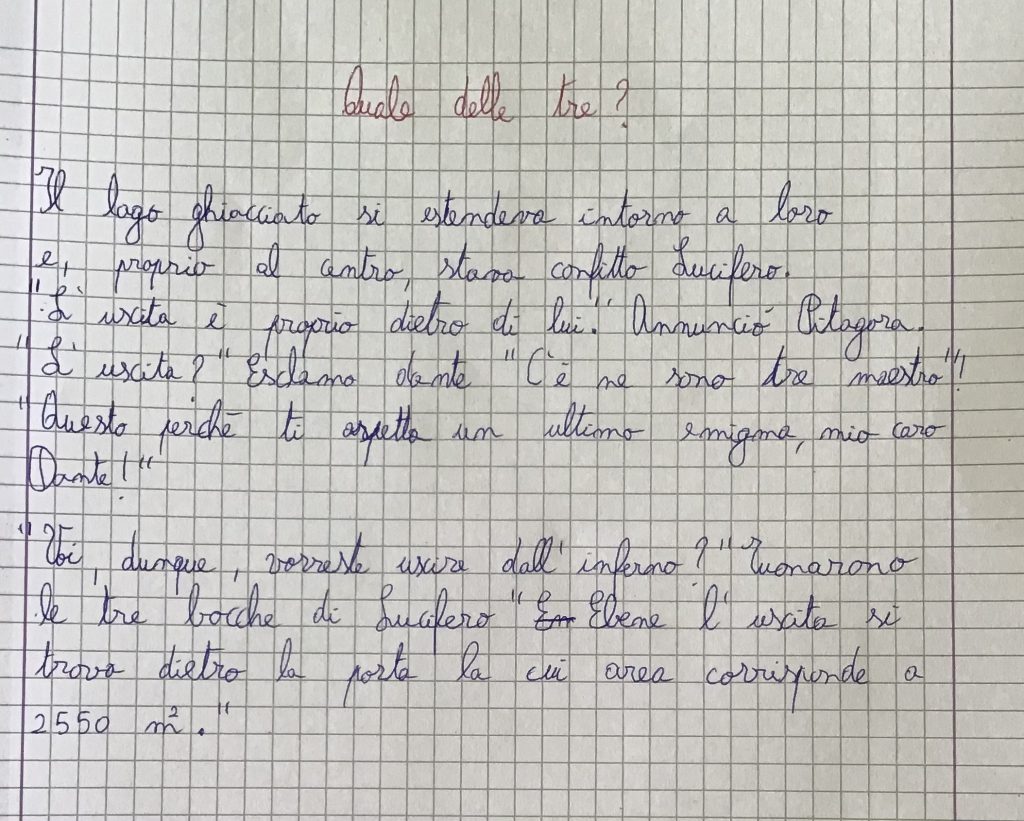 Quale delle tre?
Il lago ghiacciato si estendeva intorno a loro
e, proprio al centro, stava confitto Lucifero.
"L' uscita è proprio dietro di lui." Annunciò Pitagora.
"L' uscita?" Esclamo dante "C'è ne sono tre maestro"!
"Questo perchè ti aspetta un ultimo enigma, mio caro
Dante!"
"Voi, dunque, vorreste uscire dall' inferno?" Tuonarono
le tre bocche di Lucifero "Ebene l' uscita si
trova dietro la porta la cui area corrisponde a
2550 m²."